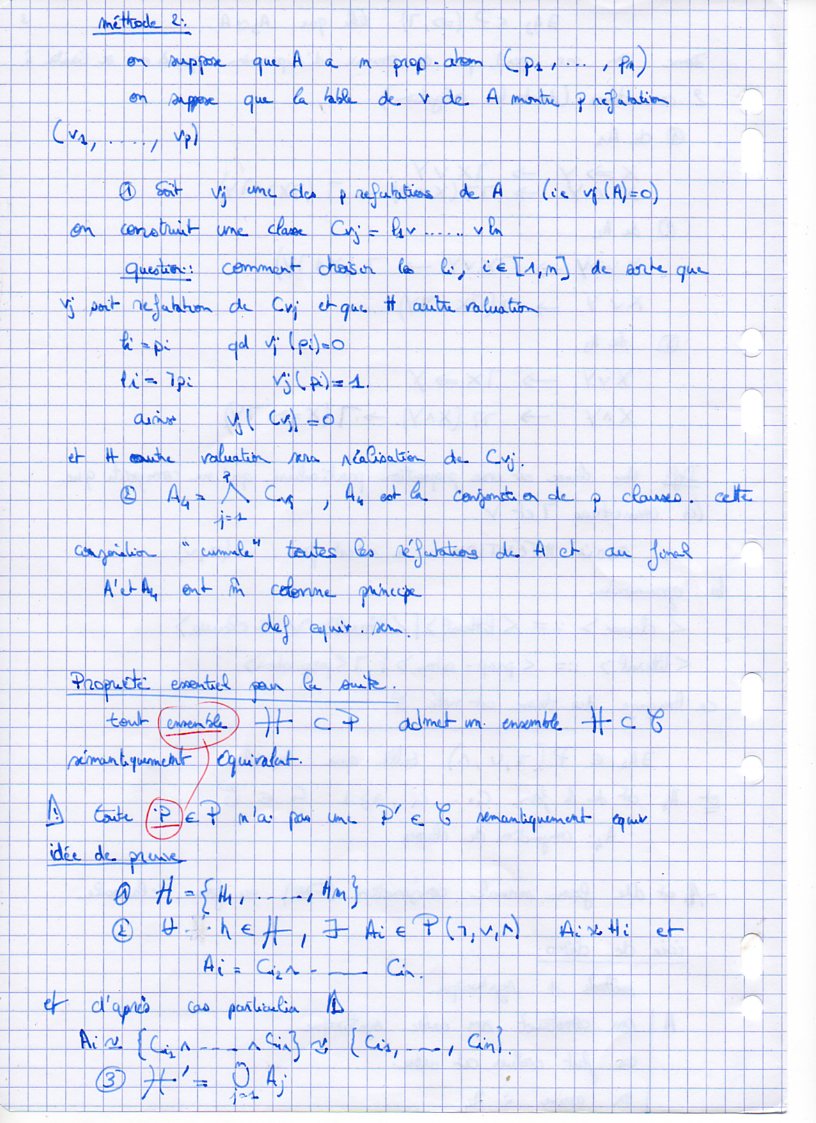 méthode 2:
on suppose que A a n prop. atom (p1, ..., pn)
on suppose que la table de v de A montre p réfutation
(v1, ....., vp)
① Soit vj une des p refutations de A (ie vj(A)=0)
on construit une classe Cvj = l1 ∨ ...... ∨ ln
question: comment choisir les li, i ∈ [1,n] de sorte que
vj soit refutation de Cvj et que ∀ autre valuation
li = pi qd vj(pi)=0
li = ¬pi vj(pi)=1.
ainsi vj(Cvj)=0
et ∀ autre valuation sera réalisation de Cvj.
② A4 = ⋀ j=1 p Cvj, A4 est la conjonction de p clauses. cette
conjonction "cumule" toutes les réfutations de A et au final
A' et A4 ont m̂ colonne principe
def equiv. sem.
Propriété essentiel pour la suite.
tout ensemble H ⊂ P admet un ensemble H ⊂ C
sémantiquement équivalent.
⚠ toute P ∈ P n'a pas une P' ∈ C semantiquement equiv
idée de preuve
① H = {H1, ....., Hn}
② ∀ h ∈ H, ∃ Ai ∈ P(¬,∨,∧) Ai ≈ Hi et
Ai = Ci1 ∧ ---- Cin.
et d'après cas particulier ⚠
Ai ≈ {Ci1 ∧ ---- ∧ Cin} ≈ {Ci1, ---, Cin}.
③ H' = ⋃ j=1 n Aj